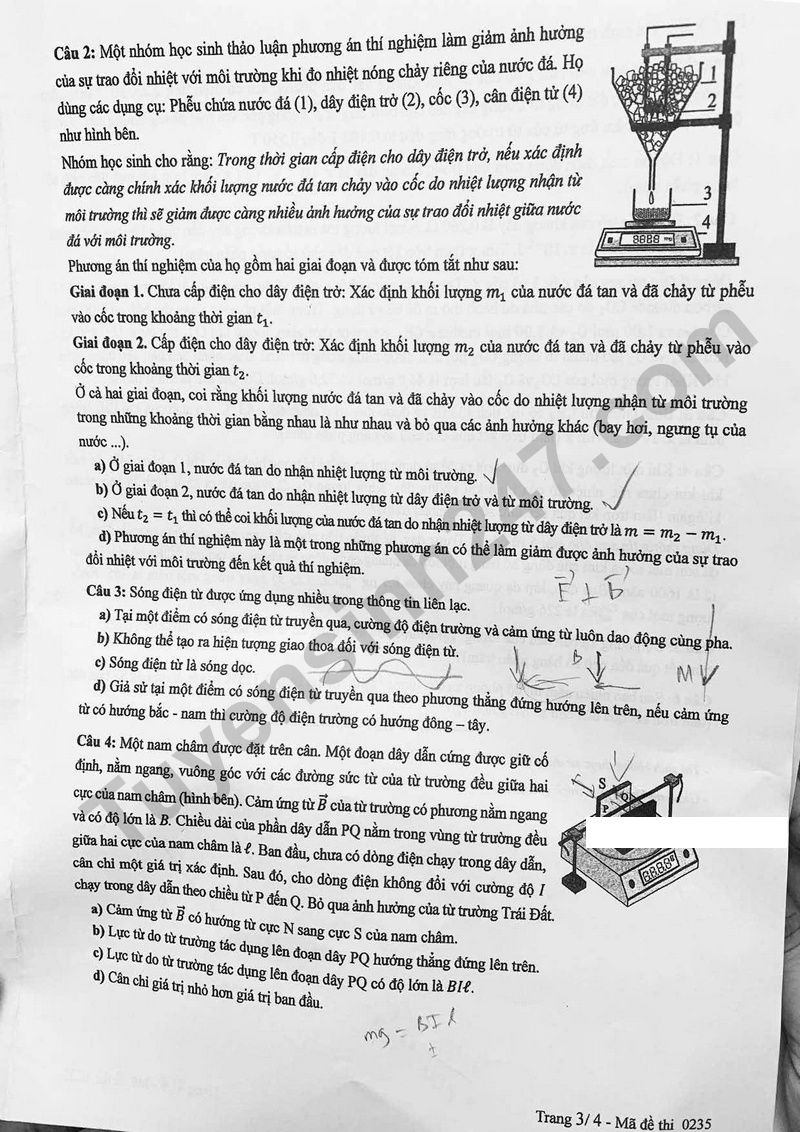 Câu 2: Một nhóm học sinh thảo luận phương án thí nghiệm làm giảm ảnh hưởng
của sự trao đổi nhiệt với môi trường khi đo nhiệt nóng chảy riêng của nước đá. Họ
dùng các dụng cụ: Phễu chứa nước đá (1), dây điện trở (2), cốc (3), cân điện tử (4)
như hình bên.
Nhóm học sinh cho rằng: Trong thời gian cấp điện cho dây điện trở, nếu xác định
được càng chính xác khối lượng nước đá tan chảy vào cốc do nhiệt lượng nhận từ
môi trường thì sẽ giảm được càng nhiều ảnh hưởng của sự trao đổi nhiệt giữa nước
đá với môi trường.
1
2
3
4
8888
Phương án thí nghiệm của họ gồm hai giai đoạn và được tóm tắt như sau:
Giai đoạn 1. Chưa cấp điện cho dây điện trở: Xác định khối lượng m₁ của nước đá tan và đã chảy từ phễu
vào cốc trong khoảng thời gian t₁.
Giai đoạn 2. Cấp điện cho dây điện trở: Xác định khối lượng m₂ của nước đá tan và đã chảy từ phễu vào
cốc trong khoảng thời gian t₂.
Ở cả hai giai đoạn, coi rằng khối lượng nước đá tan và đã chảy vào cốc do nhiệt lượng nhận từ môi trường
trong những khoảng thời gian bằng nhau là như nhau và bỏ qua các ảnh hưởng khác (bay hơi, ngưng tụ của
nước ...).
a) Ở giai đoạn 1, nước đá tan do nhận nhiệt lượng từ môi trường.
b) Ở giai đoạn 2, nước đá tan do nhận nhiệt lượng từ dây điện trở và từ môi trường.
c) Nếu t₂ = t₁ thì có thể coi khối lượng của nước đá tan do nhận nhiệt lượng từ dây điện trở là m = m₂ − m₁.
d) Phương án thí nghiệm này là một trong những phương án có thể làm giảm được ảnh hưởng của sự trao
đổi nhiệt với môi trường đến kết quả thí nghiệm.
Câu 3: Sóng điện từ được ứng dụng nhiều trong thông tin liên lạc.
E ⊥ B
a) Tại một điểm có sóng điện từ truyền qua, cường độ điện trường và cảm ứng từ luôn dao động cùng pha.
b) Không thể tạo ra hiện tượng giao thoa đối với sóng điện từ.
c) Sóng điện từ là sóng dọc.
B
M
d) Giả sử tại một điểm có sóng điện từ truyền qua theo phương thẳng đứng hướng lên trên, nếu cảm ứng
từ có hướng bắc - nam thì cường độ điện trường có hướng đông – tây.
Câu 4: Một nam châm được đặt trên cân. Một đoạn dây dẫn cứng được giữ cố
định, nằm ngang, vuông góc với các đường sức từ của từ trường đều giữa hai
cực của nam châm (hình bên). Cảm ứng từ B⃗ của từ trường có phương nằm ngang
và có độ lớn là B. Chiều dài của phần dây dẫn PQ nằm trong vùng từ trường đều
giữa hai cực của nam châm là ℓ. Ban đầu, chưa có dòng điện chạy trong dây dẫn,
cân chỉ một giá trị xác định. Sau đó, cho dòng điện không đổi với cường độ I
chạy trong dây dẫn theo chiều từ P đến Q. Bỏ qua ảnh hưởng của từ trường Trái Đất.
S
P
Q
8888
a) Cảm ứng từ B⃗ có hướng từ cực N sang cực S của nam châm.
b) Lực từ do từ trường tác dụng lên đoạn dây PQ hướng thẳng đứng lên trên.
c) Lực từ do từ trường tác dụng lên đoạn dây PQ có độ lớn là BIℓ.
d) Cân chỉ giá trị nhỏ hơn giá trị ban đầu.
mg = BIl
Trang 3/ 4 - Mã đề thi 0235
Tuyensinh247.com